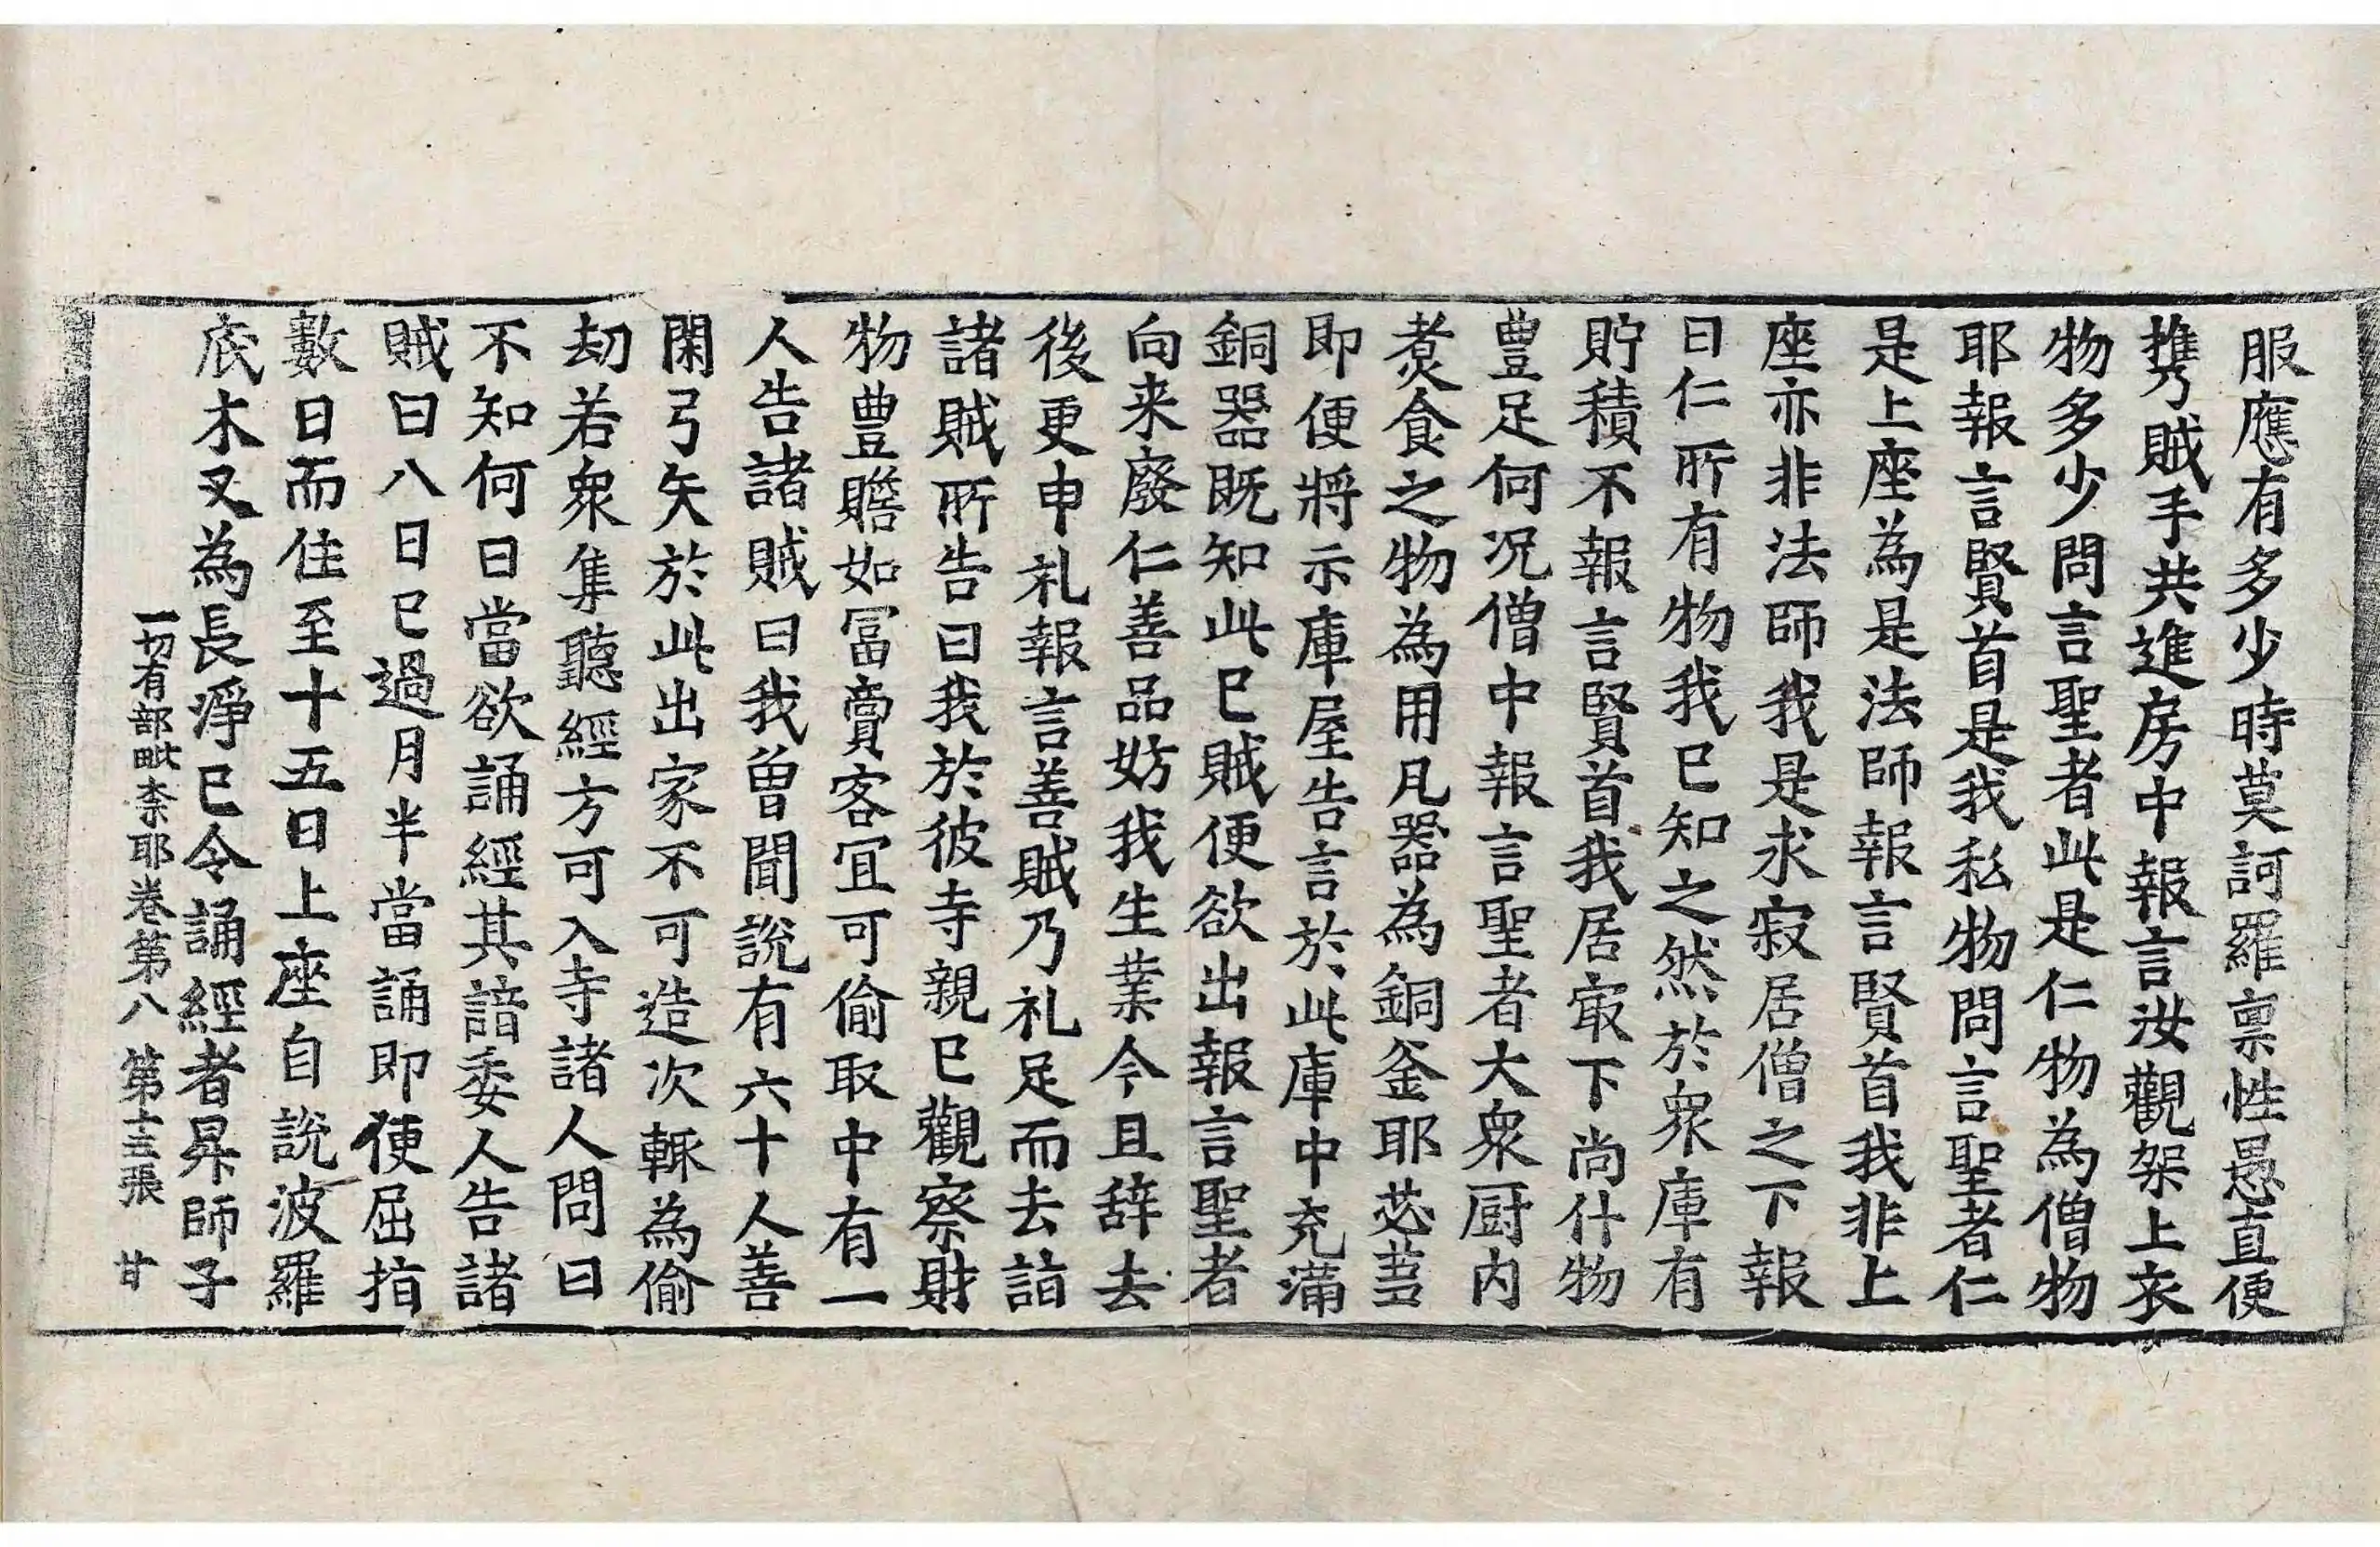 服應有多少時莫訶羅禀性愚直便
携賊手共進房中報言汝觀架上衣
物多少問言聖者此是仁物為僧物
耶報言賢首是我私物問言聖者仁
是上座為是法師報言賢首我非上
座亦非法師我是求寂居僧之下報
曰仁所有物我已知之然於衆庫有
貯積不報言賢首我居㝡下尚什物
豊足何况僧中報言聖者大衆厨内
煑食之物為用凡器為銅釜耶苾蒭
即便將示庫屋告言於此庫中充滿
銅器既知此已賊便欲出報言聖者
向来廢仁善品妨我生業今且辞去
後更申礼報言善賊乃礼足而去詣
諸賊所告曰我於彼寺親已觀察財
物豊贍如冨賣客冝可偷取中有一
人告諸賊曰我曽聞說有六十人善
閑弓矢於此出家不可造次輙為偷
劫若衆集聽經方可入寺諸人問曰
不知何日當欲誦經其諳委人告諸
賊曰八日已過月半當誦即便屈指
數日而住至十五日上座自說波羅
底木叉為長淨已令誦經者昇師子
一切有部毗柰耶卷第八 第十三張 甘